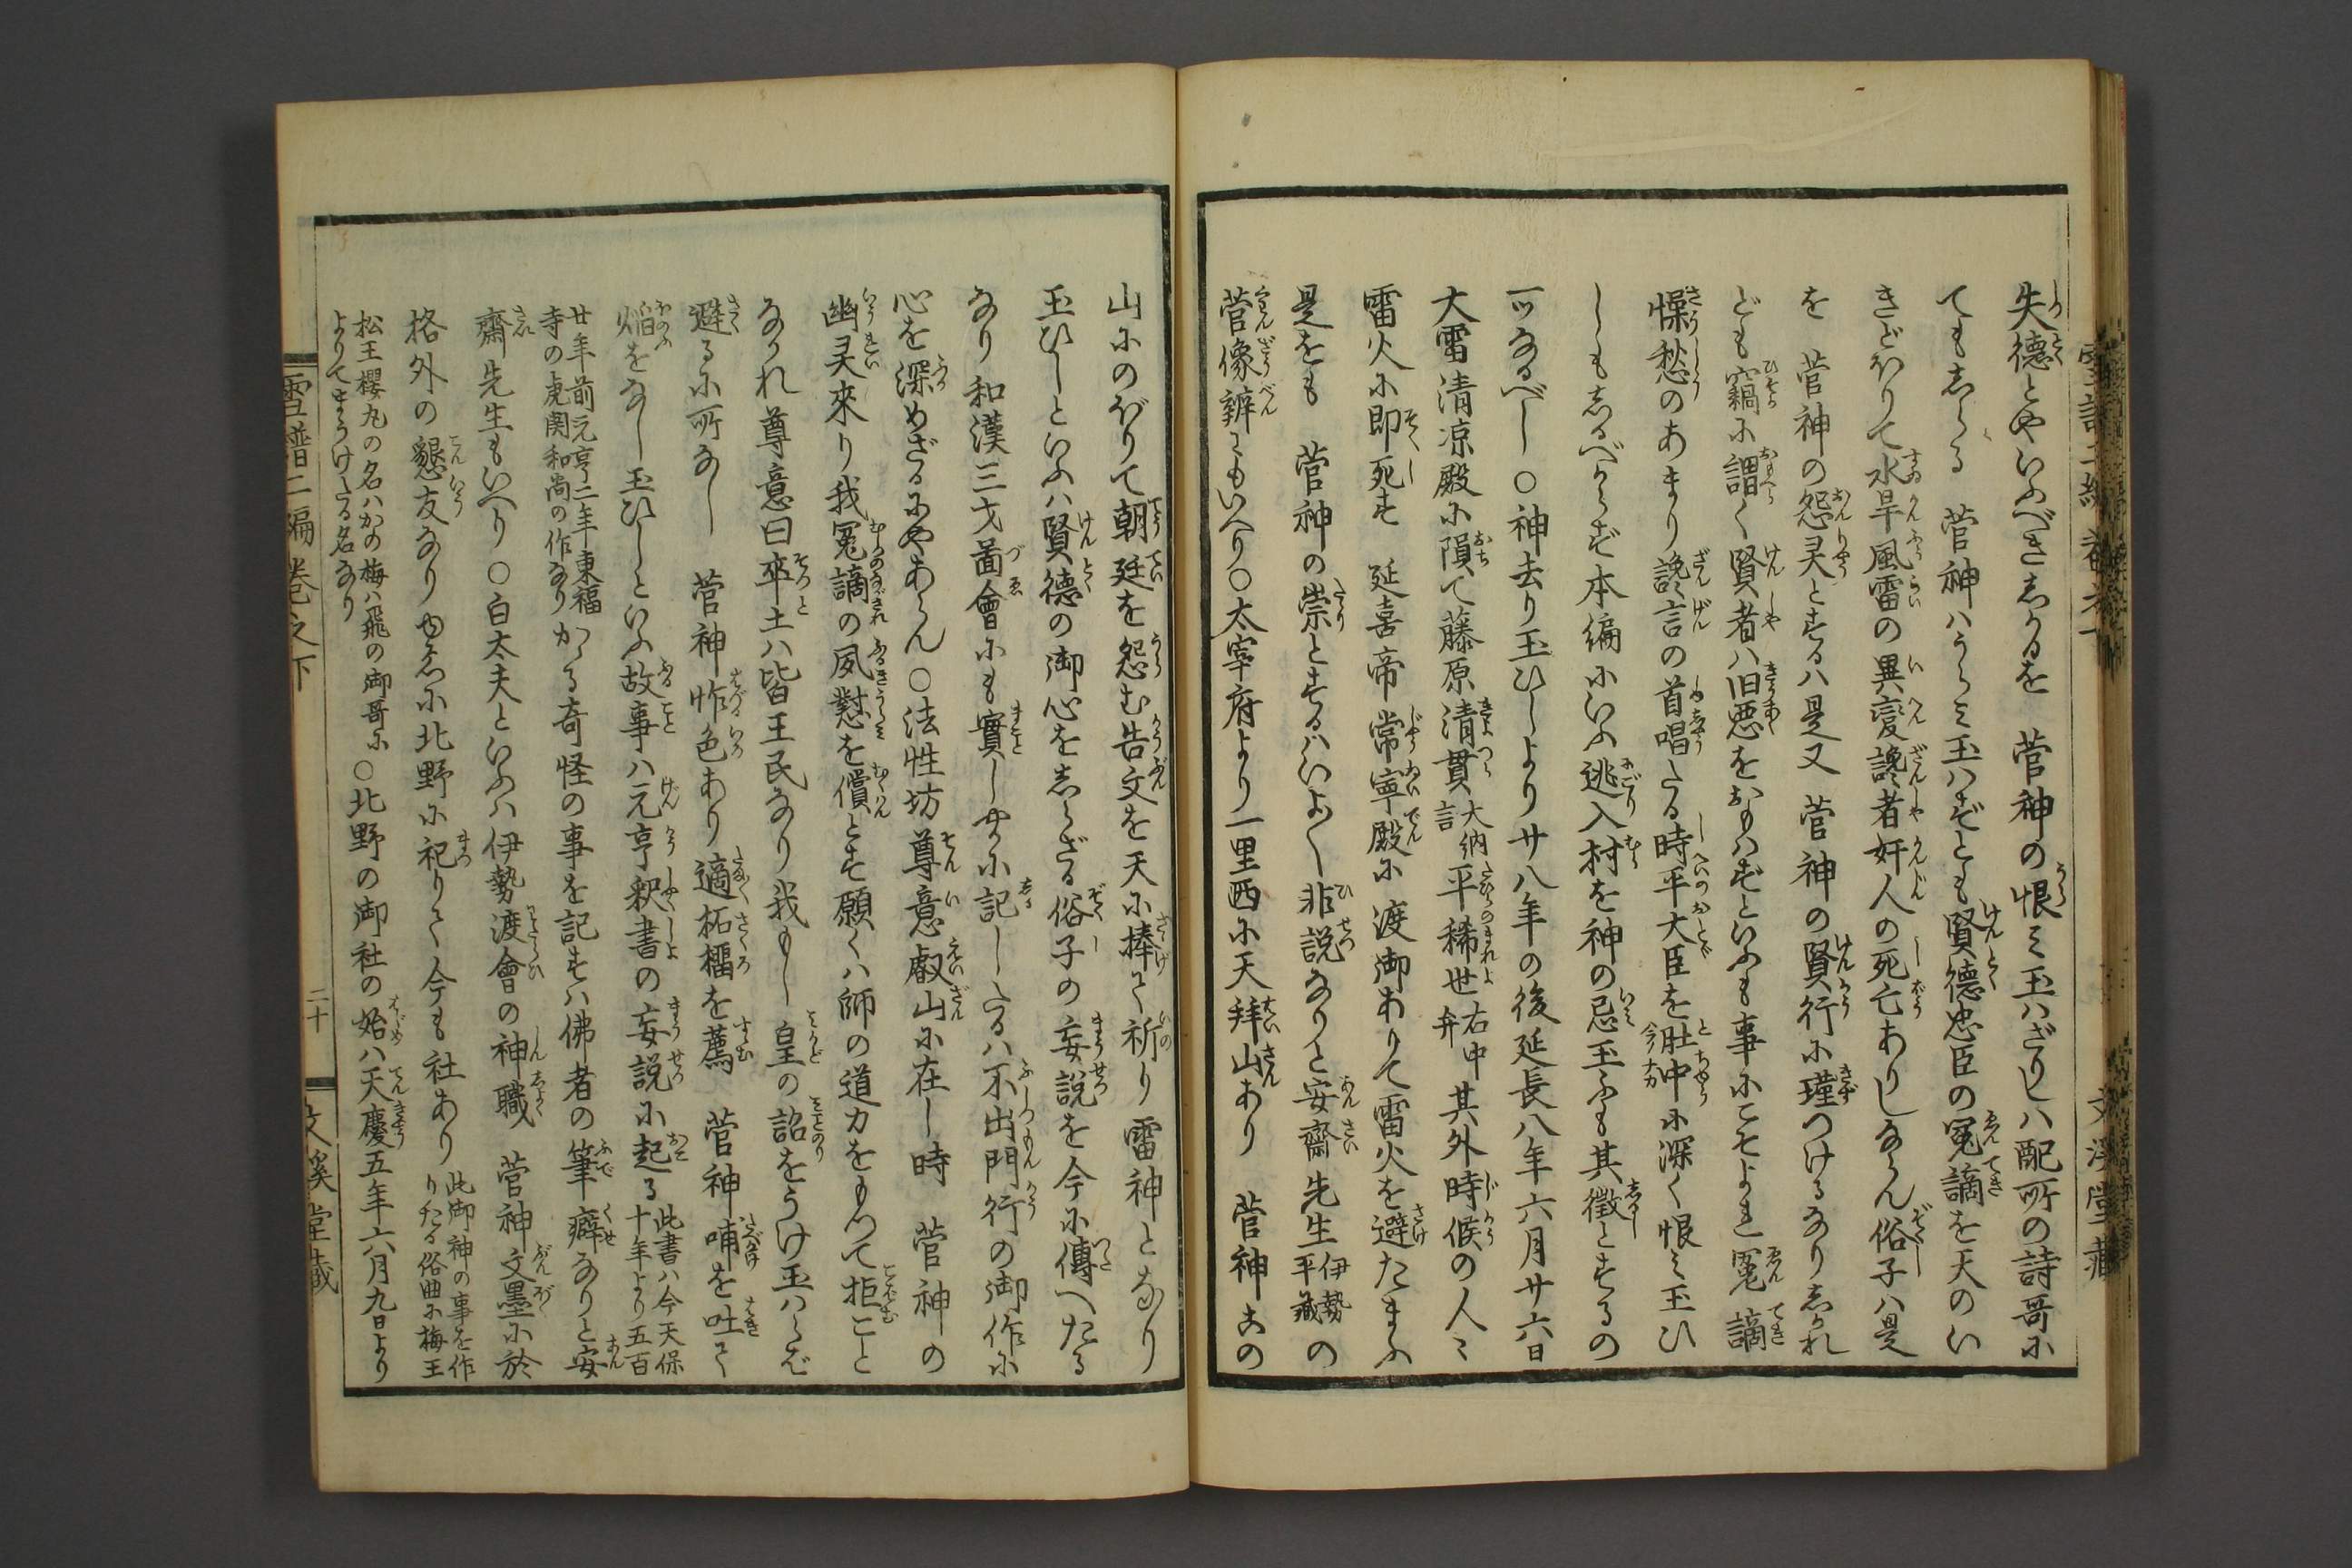 失德とやいふべきしかるを　菅神の恨ミ玉ハざりしハ配所の詩哥に
てもしらる　菅神ハうらミ玉ハずとも賢德忠臣の冤謫を天のい
きどほりて水旱風雷の異變讒者奸人の死亡ありしならん俗子ハ是
を　菅神の怨灵とするハ是又　菅神の賢行に瑾つけるなりしかれ
ども竊に謂く賢者ハ旧悪をおもハずといふも事にこそよれ冤謫
懆愁のあまり讒言の首唱たる時平大臣を肚中に深く恨ミ玉ひ
しもしるべからず本編にいふ逃入村を神の忌玉ふも其徵とするの
一ツなるべし○神去り玉ひしより廿八年の後延長八年六月廿六日
大雷清凉殿に隕て藤原清貫大納言平稀世右中弁其外時候の人々
雷火に即死す　延喜帝常寧殿に渡御ありて雷火を避たまふ
是をも　菅神の崇とするハいよ〱非説なりと安齋先生伊勢平蔵の
菅像辨にもいへり○太宰府より一里西に天拜山あり　菅神この
山にのぼりて朝廷を怨む告文を天に捧て祈り雷神となり
玉ひしといふハ賢德の御心をしらざる俗子の妄説を今に傳へたる
なり和漢三才圖會にも實しやかに記したるハ不出門行の御作に
心を深めざるにやあらん○法性坊尊意叡山に在し時　菅神の
幽灵來り我冤謫の夙懟を償とす願くハ師の道力をもつて拒こと
なかれ尊意曰卒土ハ皆王民なり我もし皇の詔をうけ玉ハらバ
避るに所なし　菅神怍色あり適柘榴を薦　菅神哺を吐て
焰をなし玉ひしといふ故事ハ元亨釈書の妄説に起る此書ハ今天保十年より五百
廿年前元亨二年東福寺の虎関和尚の作なりかゝる奇怪の事を記すハ佛者の筆癖なりと安
齋先生もいへり○白太夫といふハ伊勢渡會の神職　菅神文墨に於
格外の懇友なりゆゑに北野に祀りて今も社あり此御神の事を作りたる俗曲に梅王
松王櫻丸の名ハかの梅ハ飛の御哥によりてまうけたる名なり○北野の御社の始ハ天慶五年六月九日より
雪譜二編巻之下　二十　文溪堂藏